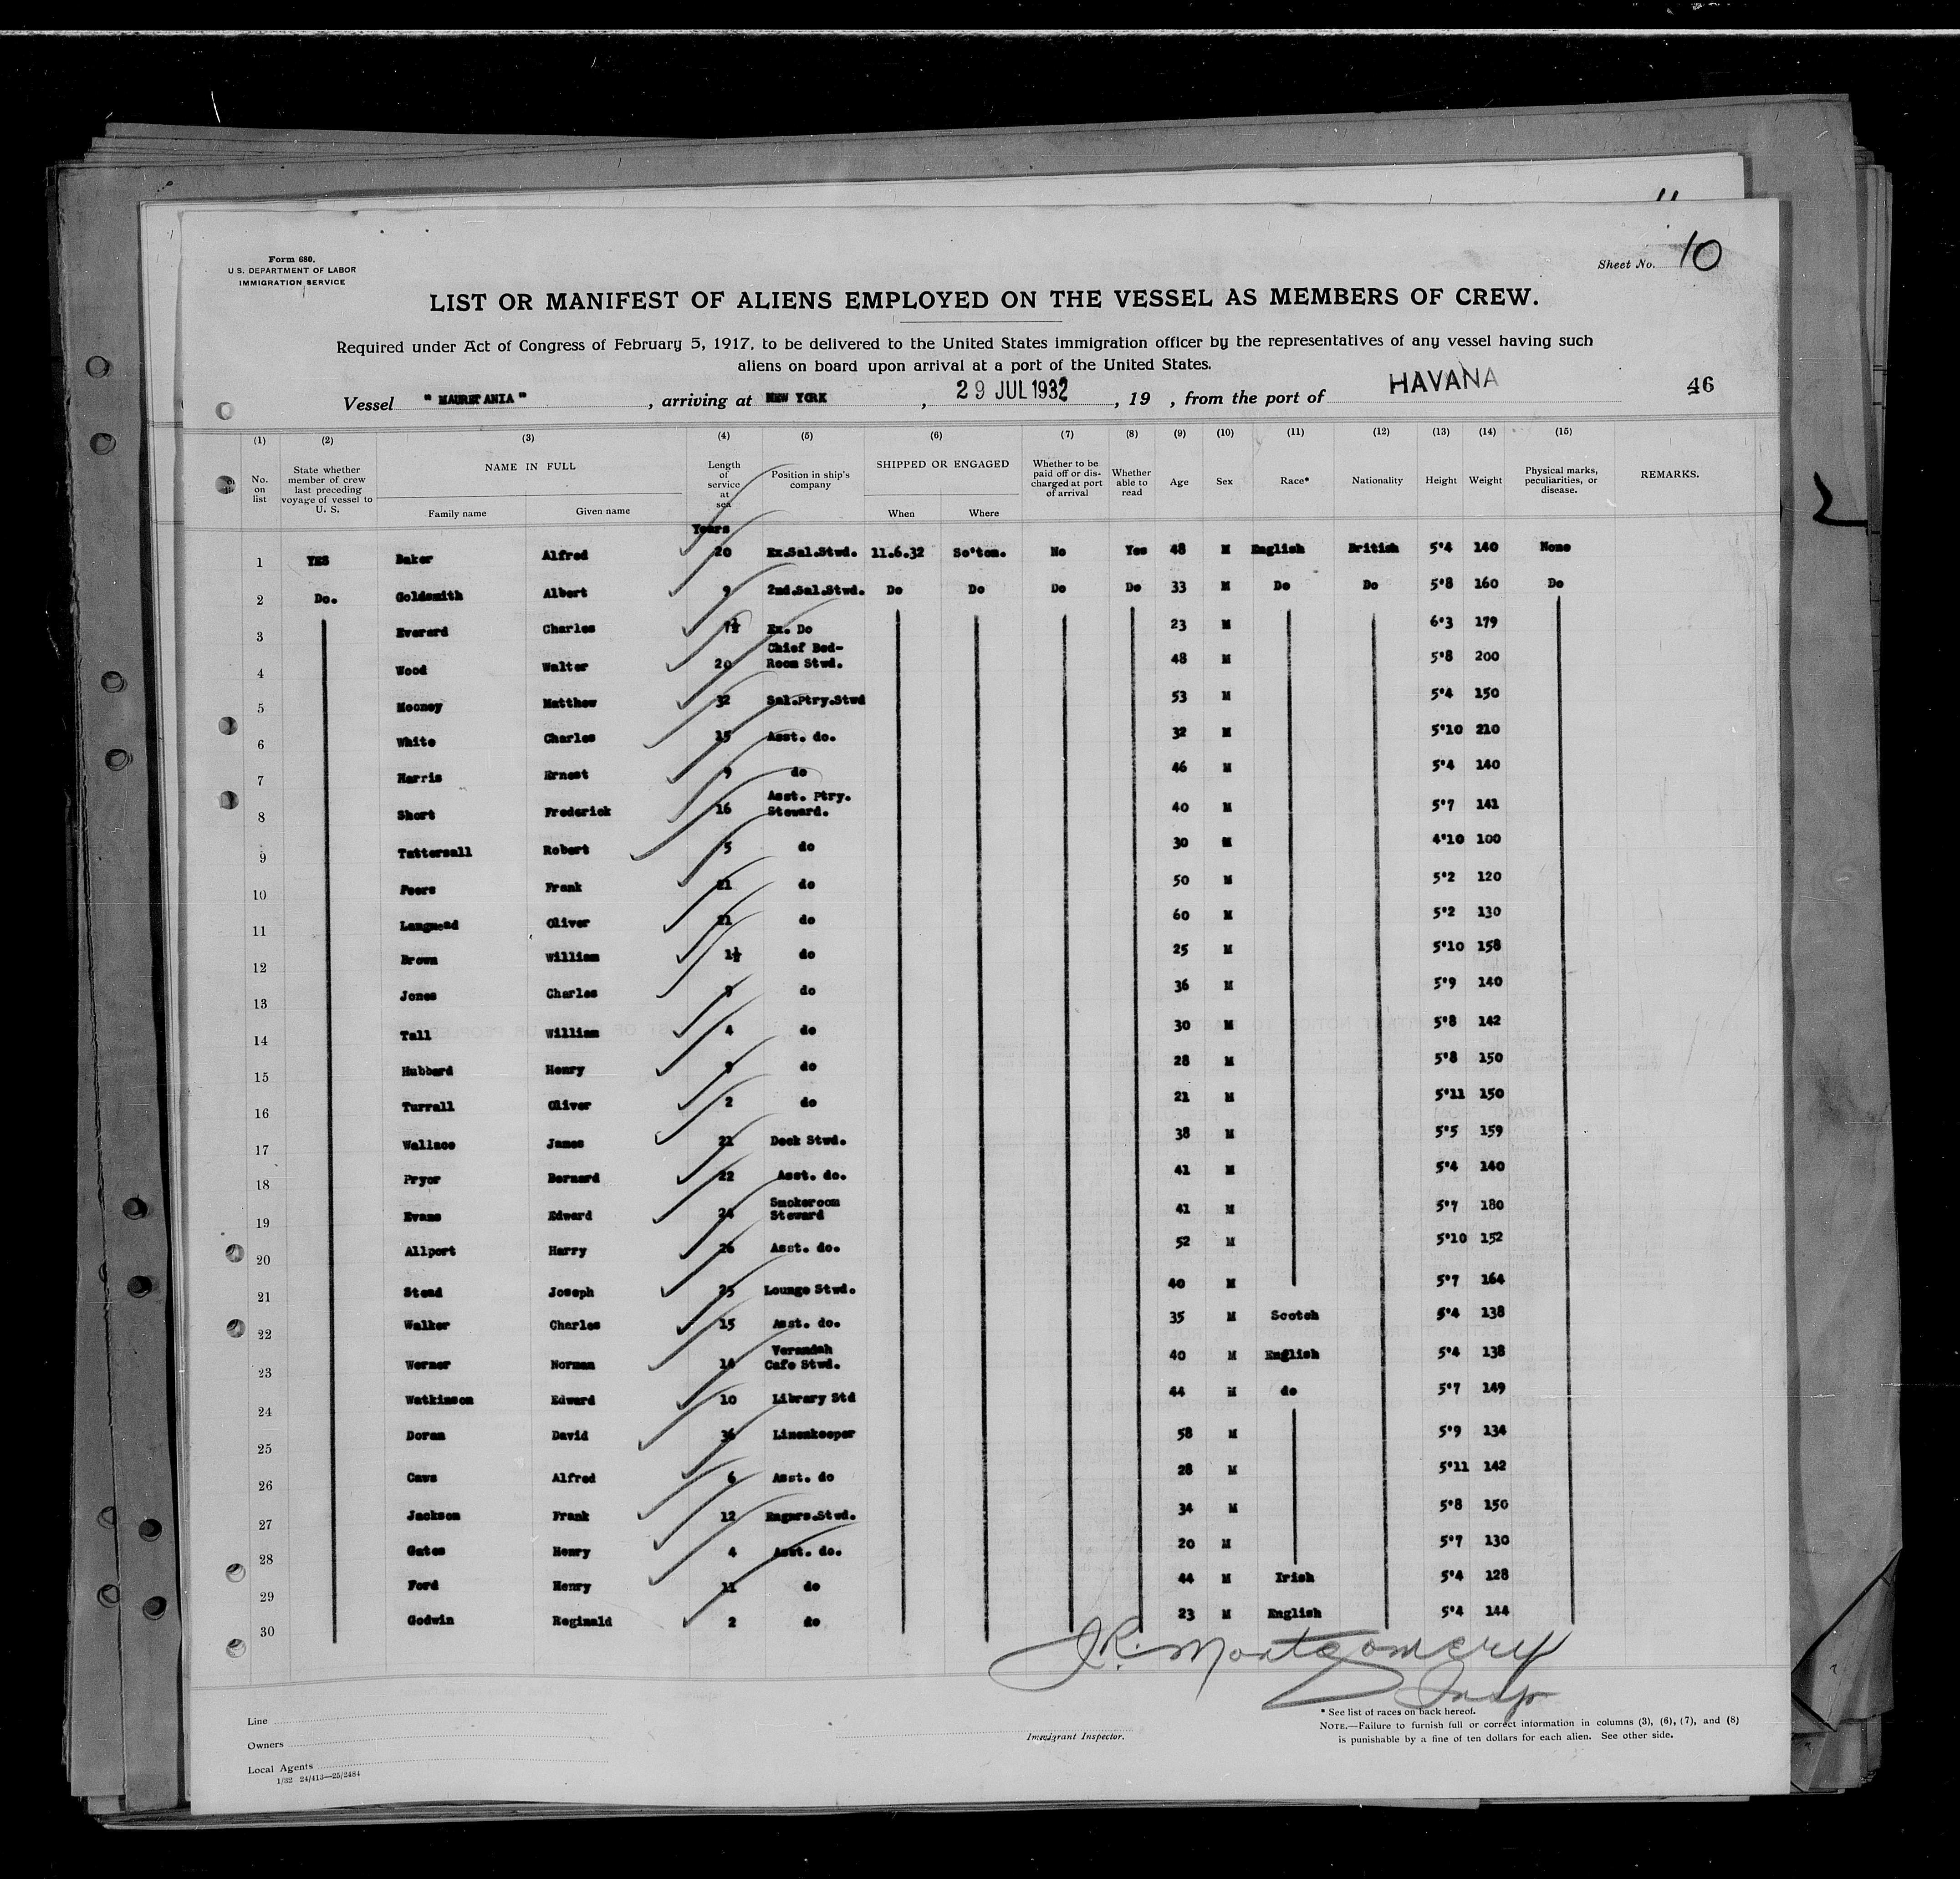 11
Form 680.
U. S. DEPARTMENT OF LABOR
IMMIGRATION SERVICE
Sheet No. 10
LIST OR MANIFEST OF ALIENS EMPLOYED ON THE VESSEL AS MEMBERS OF CREW.
Required under Act of Congress of February 5, 1917, to be delivered to the United States immigration officer by the representatives of any vessel having such
aliens on board upon arrival at a port of the United States.
Vessel "MAURETANIA", arriving at NEW YORK, 29 JUL 1932, 19 , from the port of HAVANA 46
(1) (2) (3) (4) (5) (6) (7) (8) (9) (10) (11) (12) (13) (14) (15)
No. on list State whether member of crew last preceding voyage of vessel to U. S. NAME IN FULL Family name Given name Length of service at sea Position in ship's company SHIPPED OR ENGAGED When Where Whether to be paid off or discharged at port of arrival Whether able to read Age Sex Race* Nationality Height Weight Physical marks, peculiarities, or disease. REMARKS.
Years
1 YES Baker Alfred 20 Ex.Sal.Stwd. 11.6.32 So'ton. No Yes 48 M English British 5'4 140 None
2 Do. Goldsmith Albert 9 2nd.Sal.Stwd. Do Do Do Do 33 M Do Do 5'8 160 Do
3 Everard Charles 7½ Ex. Do 23 M 6'3 179
4 Wood Walter 20 Chief Bed-Room Stwd. 48 M 5'8 200
5 Mooney Matthew 32 Sal.Ptry.Stwd 53 M 5'4 150
6 White Charles 15 Asst. do. 32 M 5'10 210
7 Harris Ernest 9 do 46 M 5'4 140
8 Short Frederick 16 Asst. Ptry. Steward. 40 M 5'7 141
9 Tattersall Robert 5 do 30 M 4'10 100
10 Peers Frank 21 do 50 M 5'2 120
11 Langmead Oliver 21 do 60 M 5'2 130
12 Brown William 1½ do 25 M 5'10 158
13 Jones Charles 9 do 36 M 5'9 140
14 Tall William 4 do 30 M 5'8 142
15 Hubbard Henry 9 do 28 M 5'8 150
16 Turrall Oliver 2 do 21 M 5'11 150
17 Wallace James 21 Deck Stwd. 38 M 5'5 159
18 Pryor Bernard 22 Asst. do. 41 M 5'4 140
19 Evans Edward 24 Smokeroom Steward 41 M 5'7 180
20 Allport Harry 26 Asst. do. 52 M 5'10 152
21 Stead Joseph 25 Lounge Stwd. 40 M 5'7 164
22 Walker Charles 15 Asst. do. 35 M Scotch 5'4 138
23 Werner Norman 14 Verandah Cafe Stwd. 40 M English 5'4 138
24 Watkinson Edward 10 Library Std 44 M do 5'7 149
25 Doran David 36 Linenkeeper 58 M 5'9 134
26 Caws Alfred 6 Asst. do 28 M 5'11 142
27 Jackson Frank 12 Engnrs.Stwd. 34 M 5'8 150
28 Gates Henry 4 Asst. do. 20 M 5'7 130
29 Ford Henry 11 do 44 M Irish 5'4 128
30 Godwin Reginald 2 do 23 M English 5'4 144
J.R. Montgomery
Insp
Line
Owners
Local Agents
1/32 24/413—25/2484
Immigrant Inspector.
* See list of races on back hereof.
NOTE.—Failure to furnish full or correct information in columns (3), (6), (7), and (8)
is punishable by a fine of ten dollars for each alien. See other side.